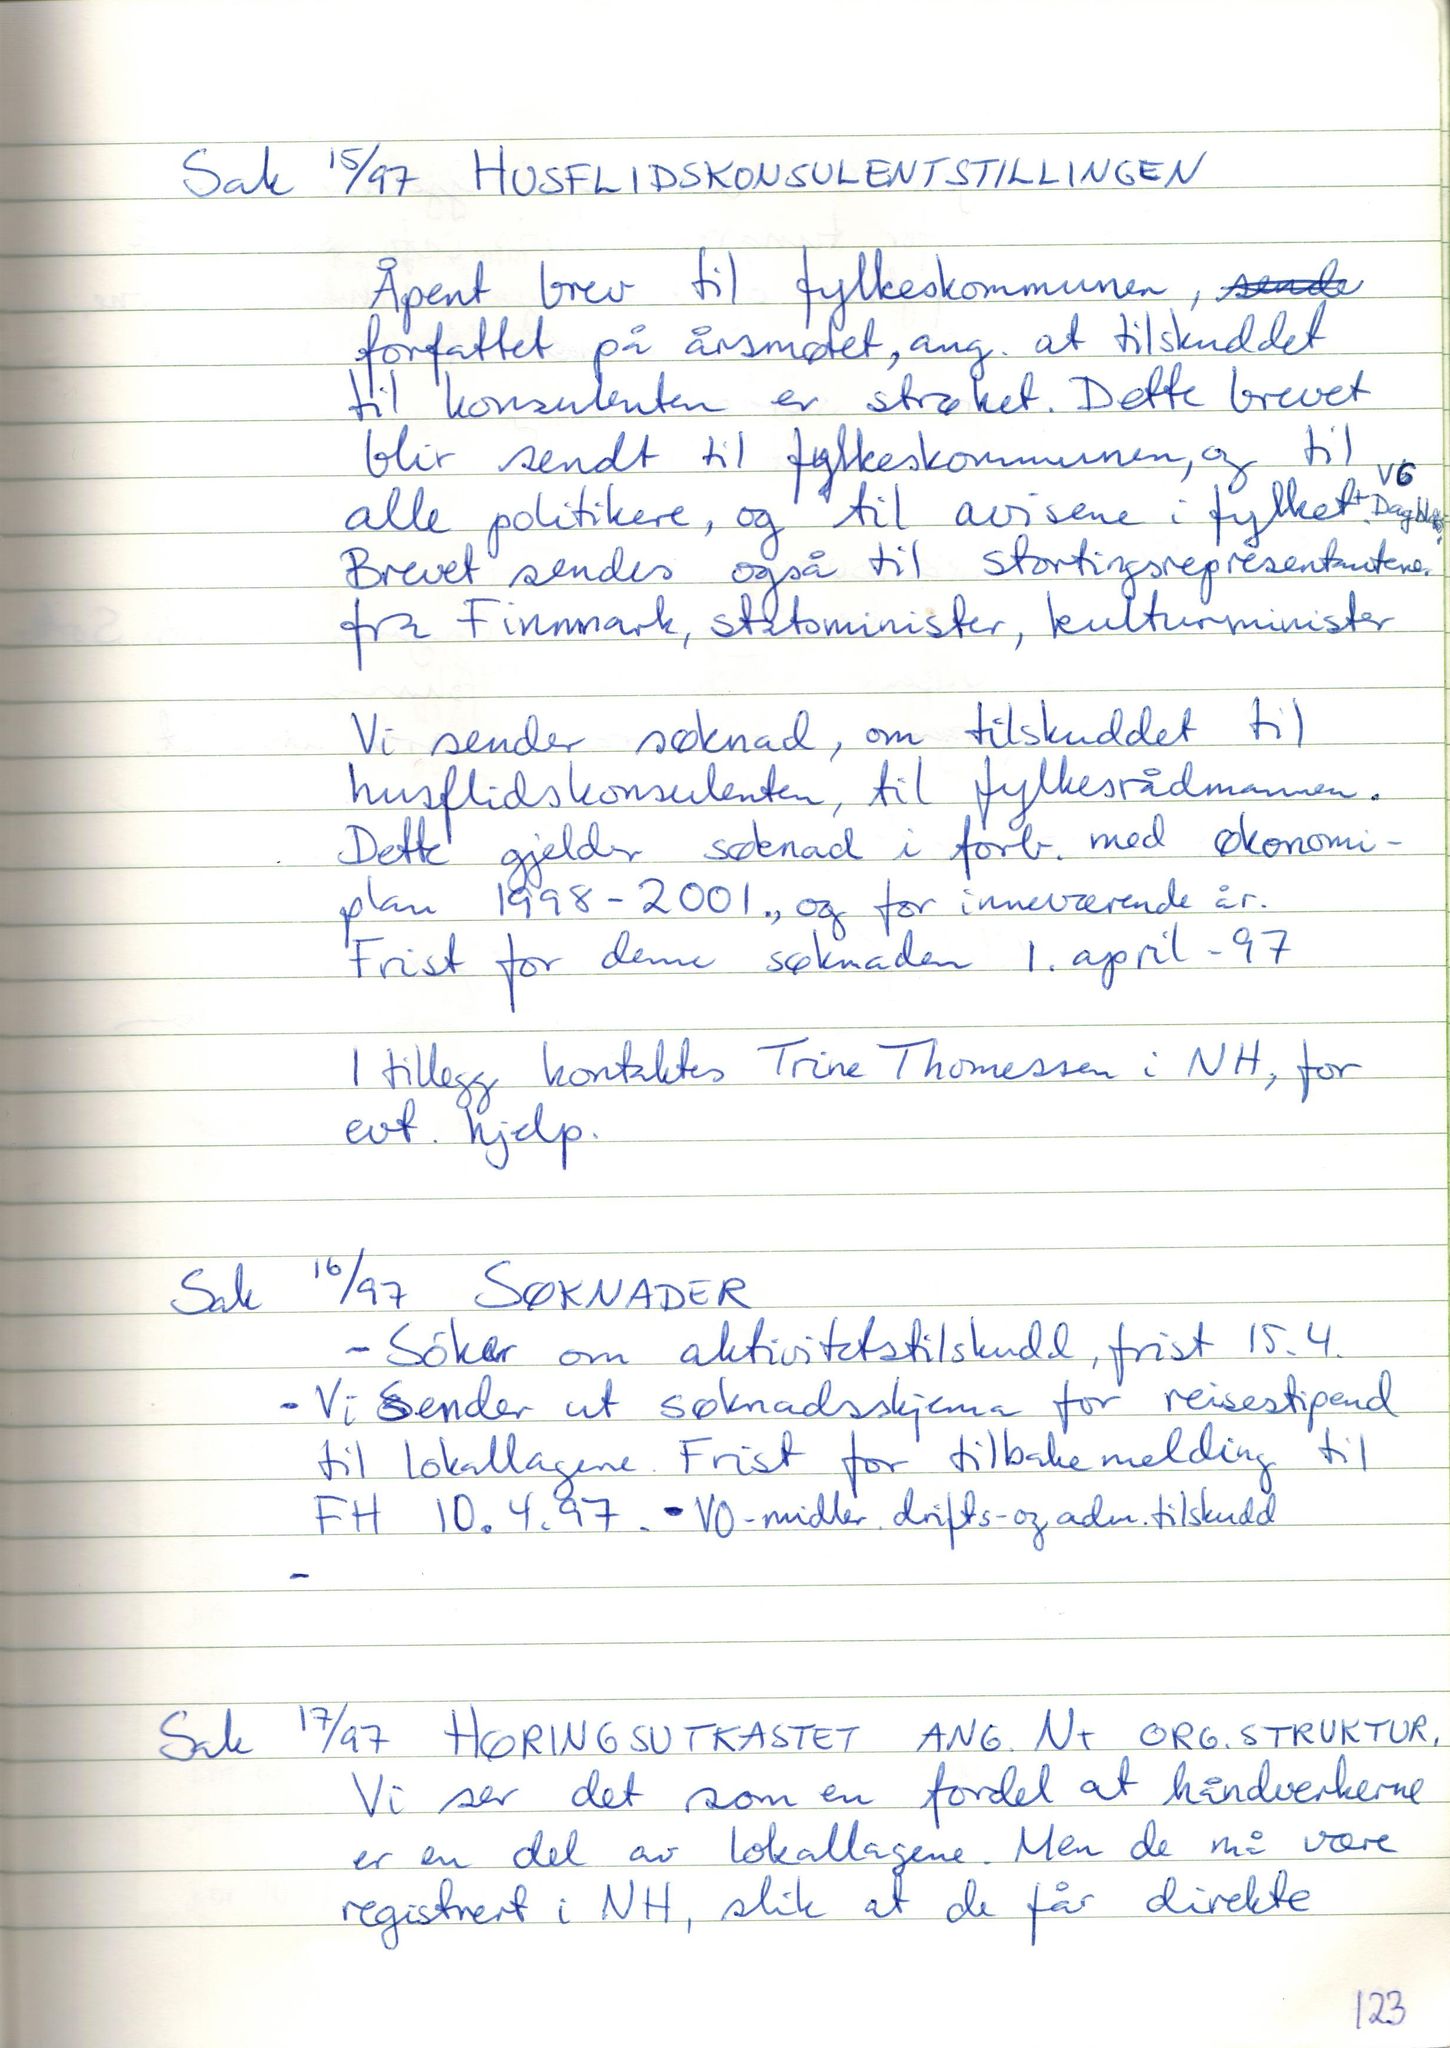 Sak 15/97 HUSFLIDSKONSULENTSTILLINGEN
Åpent brev til fylkeskommunen, sende
forfattet på årsmøtet, ang. at tilskuddet
til konsulenten er strøket. Dette brevet
blir sendt til fylkeskommunen, og til
alle politikere, og til avisene i fylket + VG Dagbla
Brevet sendes også til stortingsrepresentantene
fra Finnmark, statsminister, kulturminister
Vi sender søknad, om tilskuddet til
husflidskonsulenten, til fylkesrådmannen.
Dette gjelder søknad i forb. med økonomi-
plan 1998-2001., og for inneværende år.
Frist for denne søknaden 1. april -97
I tillegg kontaktes Trine Thomessen i NH, for
evt. hjelp.
Sak 16/97 SØKNADER
- Söker om aktivitetstilskudd, frist 15.4.
- Vi Sender ut søknadsskjema for reisestipend
til lokallagene. Frist for tilbakemelding til
FH 10.4.97. - VO-midler. drifts-og adm. tilskudd
-
Sak 17/97 HØRINGSUTKASTET ANG. N+ ORG.STRUKTUR.
Vi ser det som en fordel at håndverkerne
er en del av lokallagene. Men de må være
registrert i NH, slik at de får direkte
123